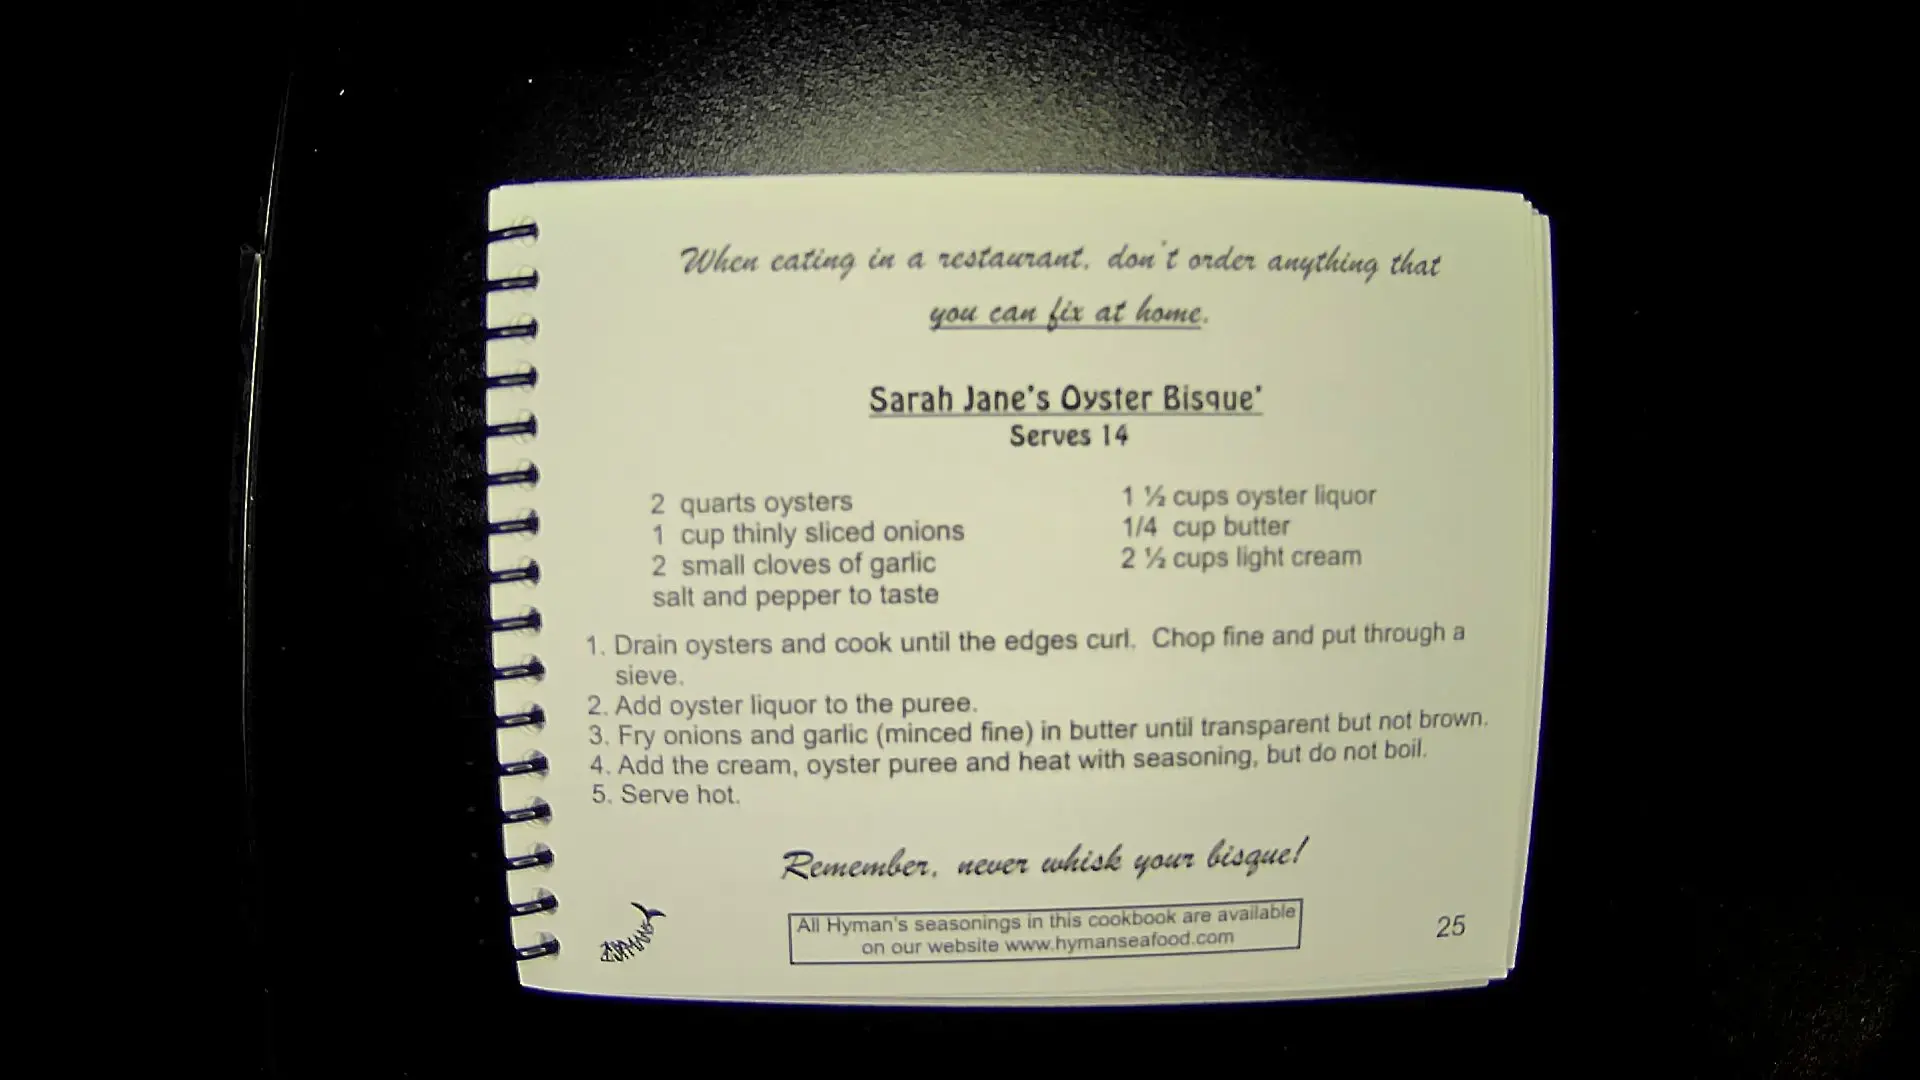 When eating in a restaurant, don't order anything that
you can fix at home.
Sarah Jane's Oyster Bisque'
Serves 14
2 quarts oysters
1 cup thinly sliced onions
2 small cloves of garlic
salt and pepper to taste
1 ½ cups oyster liquor
1/4 cup butter
2 ½ cups light cream
1. Drain oysters and cook until the edges curl. Chop fine and put through a
sieve.
2. Add oyster liquor to the puree.
3. Fry onions and garlic (minced fine) in butter until transparent but not brown.
4. Add the cream, oyster puree and heat with seasoning, but do not boil.
5. Serve hot.
Remember, never whisk your bisque!
All Hyman's seasonings in this cookbook are available
on our website www.hymanseafood.com
25